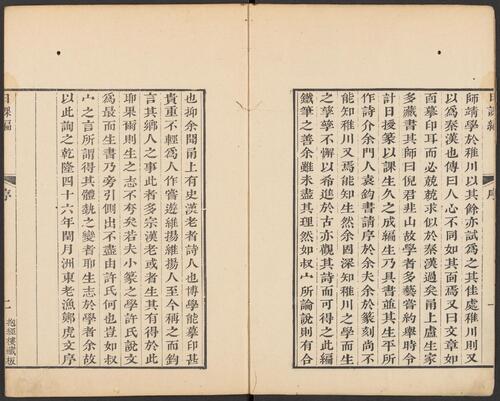 日課編
序
一
師靖學於稚川以其餘亦試爲之其佳處稚川則又
以爲秦漢也傳曰人心不同如其面焉又曰文章如
面摹印耳而必兢兢求似於秦漢過矣甬上盧生家
多藏書其師曰倪君韭山故學者多藝嘗約舉時令
計日授篆以課生久之成編生乃具書並其生平所
作詩介余門人袁鈞書請序於余夫余於篆刻尚不
能知稚川又焉能知生然余固深知稚川之學而生
之孳孳不懈以希進於古亦觀其詩而可得之此編
鐵筆之善余雖未盡其理然如叔宀所論說則有合
也抑余聞甬上有史漢老者詩人也博學能摹印甚
貴重不輕爲人作嘗遊維揚維揚人至今稱之而
言其鄉人之事此者多宗漢老或者生其有得於此
耶果爾則生之志不夸矣若夫小篆之學許氏說文
爲最而生書乃旁引側出不盡由許氏何也豈如叔
宀之言所謂得其體貌之變者耶生志於學者余故
以此詢之乾隆四十六年閏月洲東老漁鄭虎文序
日課編
序
二
抱經樓藏板